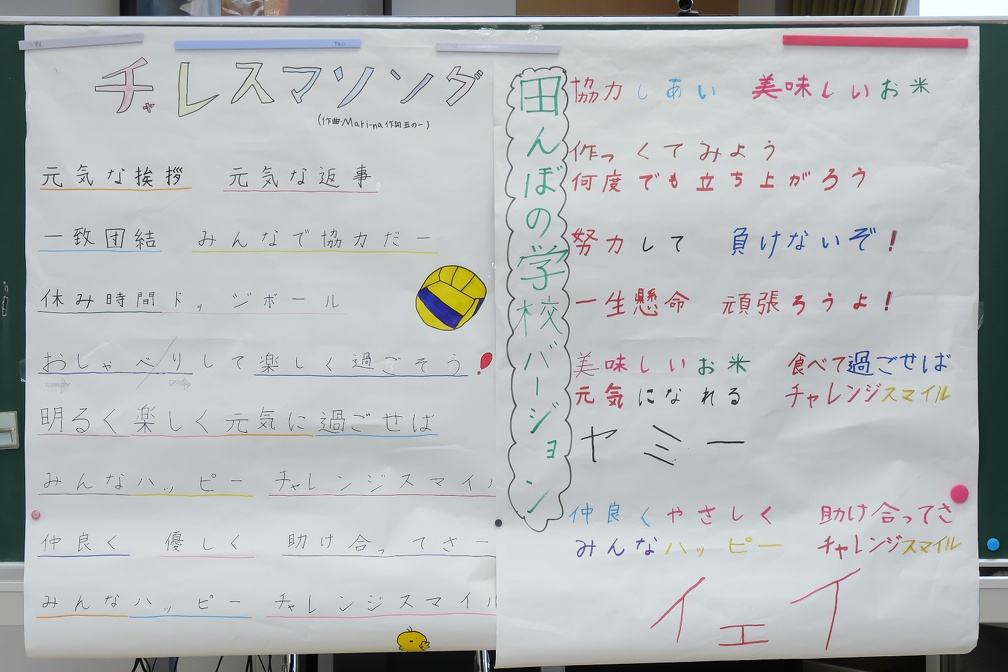 チャレスマソング
(作曲:Mari-na 作詞 五の一)
元気な挨拶 元気な返事
一致団結 みんなで協力だー
休み時間ドッジボール
おしゃべりして楽しく過ごそう!
明るく楽しく元気に過ごせば
みんなハッピー チャレンジスマイル
仲良く 優しく 助け合ってさー
みんなハッピー チャレンジスマイル
田んぼの学校バージョン
協力しあい 美味しいお米
作っくてみよう
何度でも立ち上がろう
努力して 負けないぞ!
一生懸命 頑張ろうよ!
美味しいお米 食べて過ごせば
元気になれる チャレンジスマイル
ヤミー
仲良くやさしく 助け合ってさ
みんなハッピー チャレンジスマイル
イエイ